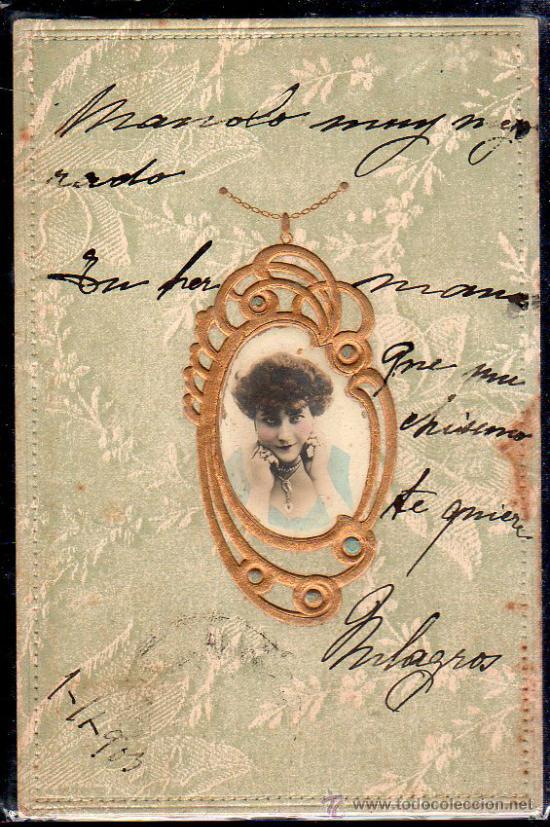 Manolo muy
rado
Tu her mana
que mu
chisimo
te quiere
Milagros
1-11-903
www.todocoleccion.net